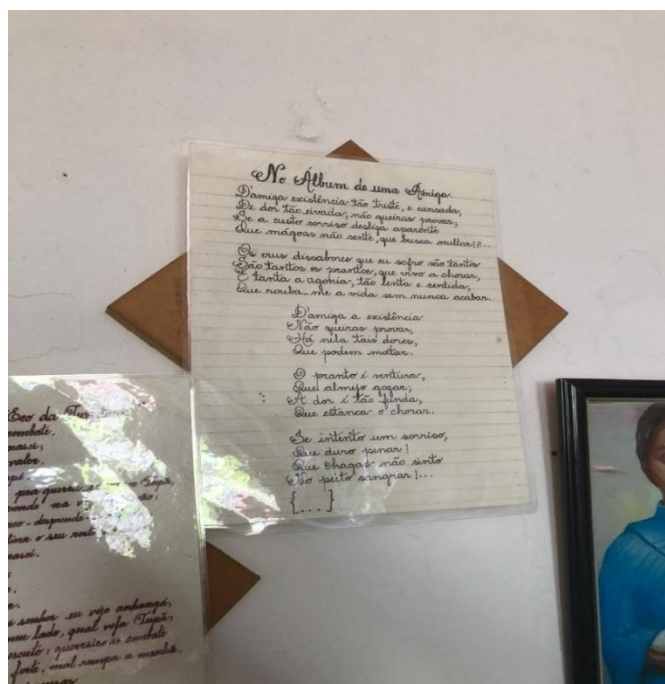 No Álbum de uma Amiga.
D'amiga existência tão triste, e cansada,
De dor tão eivada, não queiras provar;
Se a custo sorriso desliza aparente
Que mágoas não sente, que busca ocultar!?...
Os crus dissabores que eu sofro são tantos
São tantos os prantos, que vivo a chorar,
É tanta a agonia, tão lenta e sentida,
Que rouba-me a vida sem nunca acabar..
D'amiga a existência
Não queiras provar,
Há nela tais dores,
Que podem matar.
O pranto é ventura,
Que almejo gozar;
A dor é tão funda,
Que estanca o chorar..
Se intento um sorriso,
Que duro penar!
Que chagas não sinto
No peito sangrar!...
{...}
Eco da
combate,
valor,
pra Tupã,
na
desprende
o seu
sonhos eu vejo anhangá,
lado, qual veja Tupã,
guerreiro ao combate
forte, mal rompa a manhã.